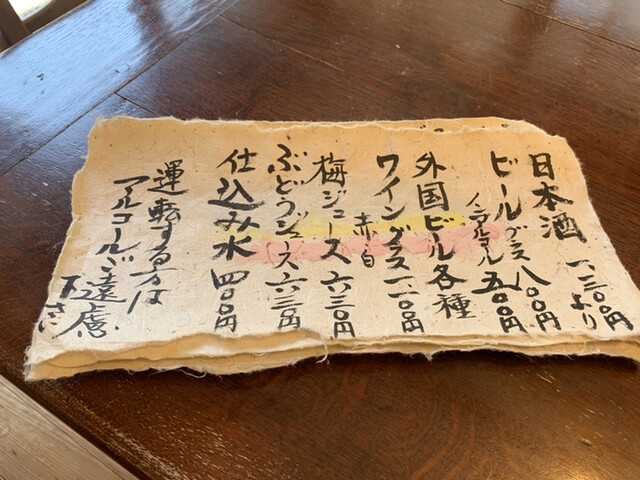 日本酒 一、三〇〇円より
ビール グラス 八〇〇円
ノンアルコール 五〇〇円
外国ビール各種
ワイングラス 赤・白 一、一〇〇円
梅ジュース 六三〇円
ぶどうジュース 六三〇円
仕込み水 四〇〇円
運転する方は
アルコールご遠慮
下さい